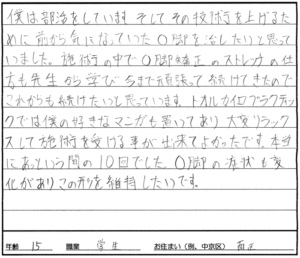 僕は部活をしています。そしてその技術を上げるた
めに前から気になっていたO脚を治したいと思って
いました。施術の中でO脚矯正のストレッチの仕
方も先生から学び今まで頑張って続けてきたので
これからも続けたいと思っています。トオルカイロプラクティッ
クでは僕の好きなマンガも置いてあり大変リラック
スして施術を受ける事が出来てよかったです。本当
にあっという間の10回でした。O脚の症状も変
化がありこの形を維持したいです。
年齢 15 職業 学生 お住まい(例、中京区)